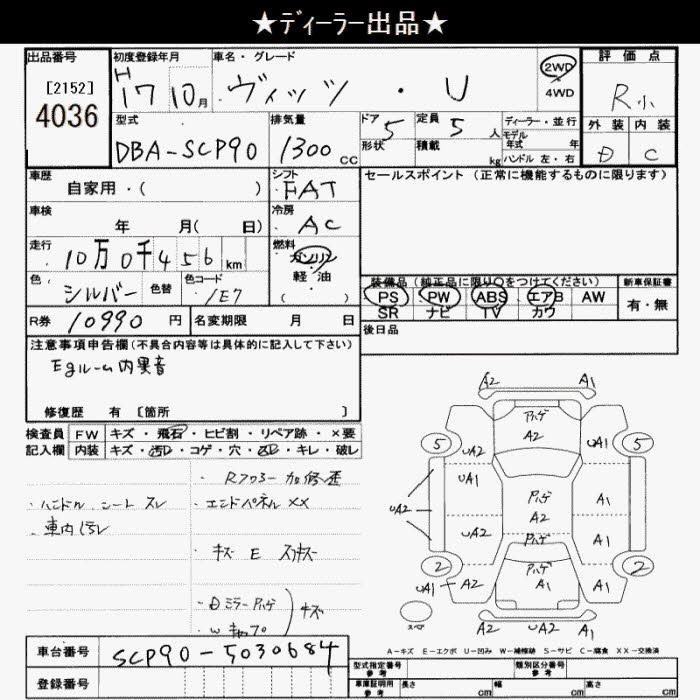 ★ディーラー出品★
出品番号 初度登録年月 車名・グレード 評価点
[2152] H 17 10月 ヴィッツ・U 2WD 4WD R小
4036 外装 内装
型式 排気量 ドア 5 定員 5人 ディーラー・並行 D C
DBA-SCP90 1300cc 形状 積載 kg モデル年式 年
ハンドル 左・右
車歴 シフト セールスポイント (正常に機能するものに限ります)
自家用・( ) FAT
車検 冷房
年 月( 日) AC
走行 燃料
10万0千456km ガソリン
色 色替 色コード 軽油
シルバー 1E7 ( )
装備品 (純正品に限り○をつけてください) 新車保証書
PS PW ABS エアB AW 有・無
SR ナビ TV カワ
R券 10990円 名変期限 月 日 後日品
注意事項申告欄(不具合内容等は具体的に記入して下さい)
Egルーム内異音
修復歴 有 [箇所 ]
検査員 FW キズ・飛石・ヒビ割・リペア跡・×要
記入欄 内装 キズ・汚レ・コゲ・穴・切レ・キレ・破レ
Rフロアー加修歪
・ハンドル、シート スレ ・エンドパネル XX
・車内汚レ
・キズ E
・Dミラー ハゲ
キズ
A2 A1
ハゲ
A2
5 UA2 UA1 5
UA1
UA2 ハゲ A1
A2
UA2 ハゲ A1
2 ハゲ 2
UA1 A2 A1 UA1
スペア A2 UA2 A1
A-キズ E-エクボ U-凹み W-補修跡 S-サビ C-腐食 XX-交換済
車台番号 SCP90-5030684
型式指定番号 参考 類別区分番号 参考
登録番号
車庫証明用 参考 長さ cm 幅 cm 高さ cm